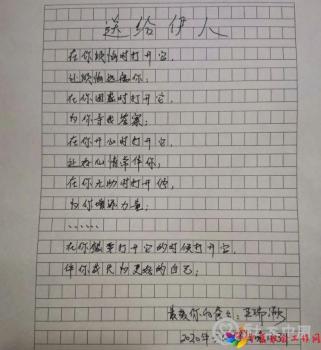 送给伊人
在你烦恼时打开它，
让烦恼远离你；
在你困惑时打开它，
为你寻找答案；
在你开心时打开它，
让好心情常伴你；
在你无助时打开它，
为你增添力量；
……
在你想要打开它的时候打开它，
伴你成长为更好的自己；
爱你的
2020年